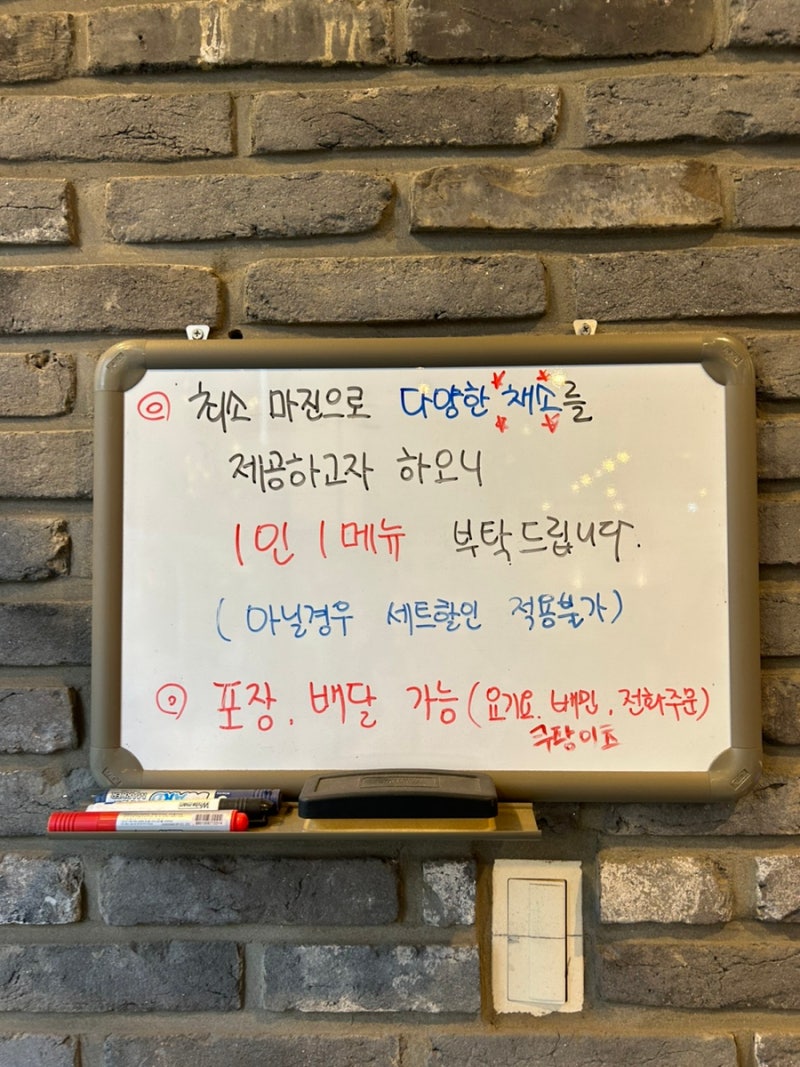 ◎ 최소 마진으로 다양한 *채소*를
제공하고자 하오니
1인 1메뉴 부탁드립니다.
(아닐경우 세트할인 적용불가)
◎ 포장, 배달 가능 (요기요, 배민, 전화주문)
쿠팡이츠